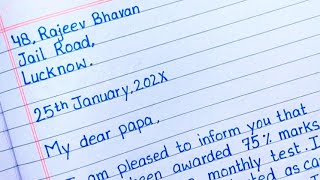 4B, Rajeev Bhavan
Jail Road,
Lucknow.
25th January, 202X
My dear papa,
I am pleased to inform you that
been awarded 75% marks
monthly test. I
as